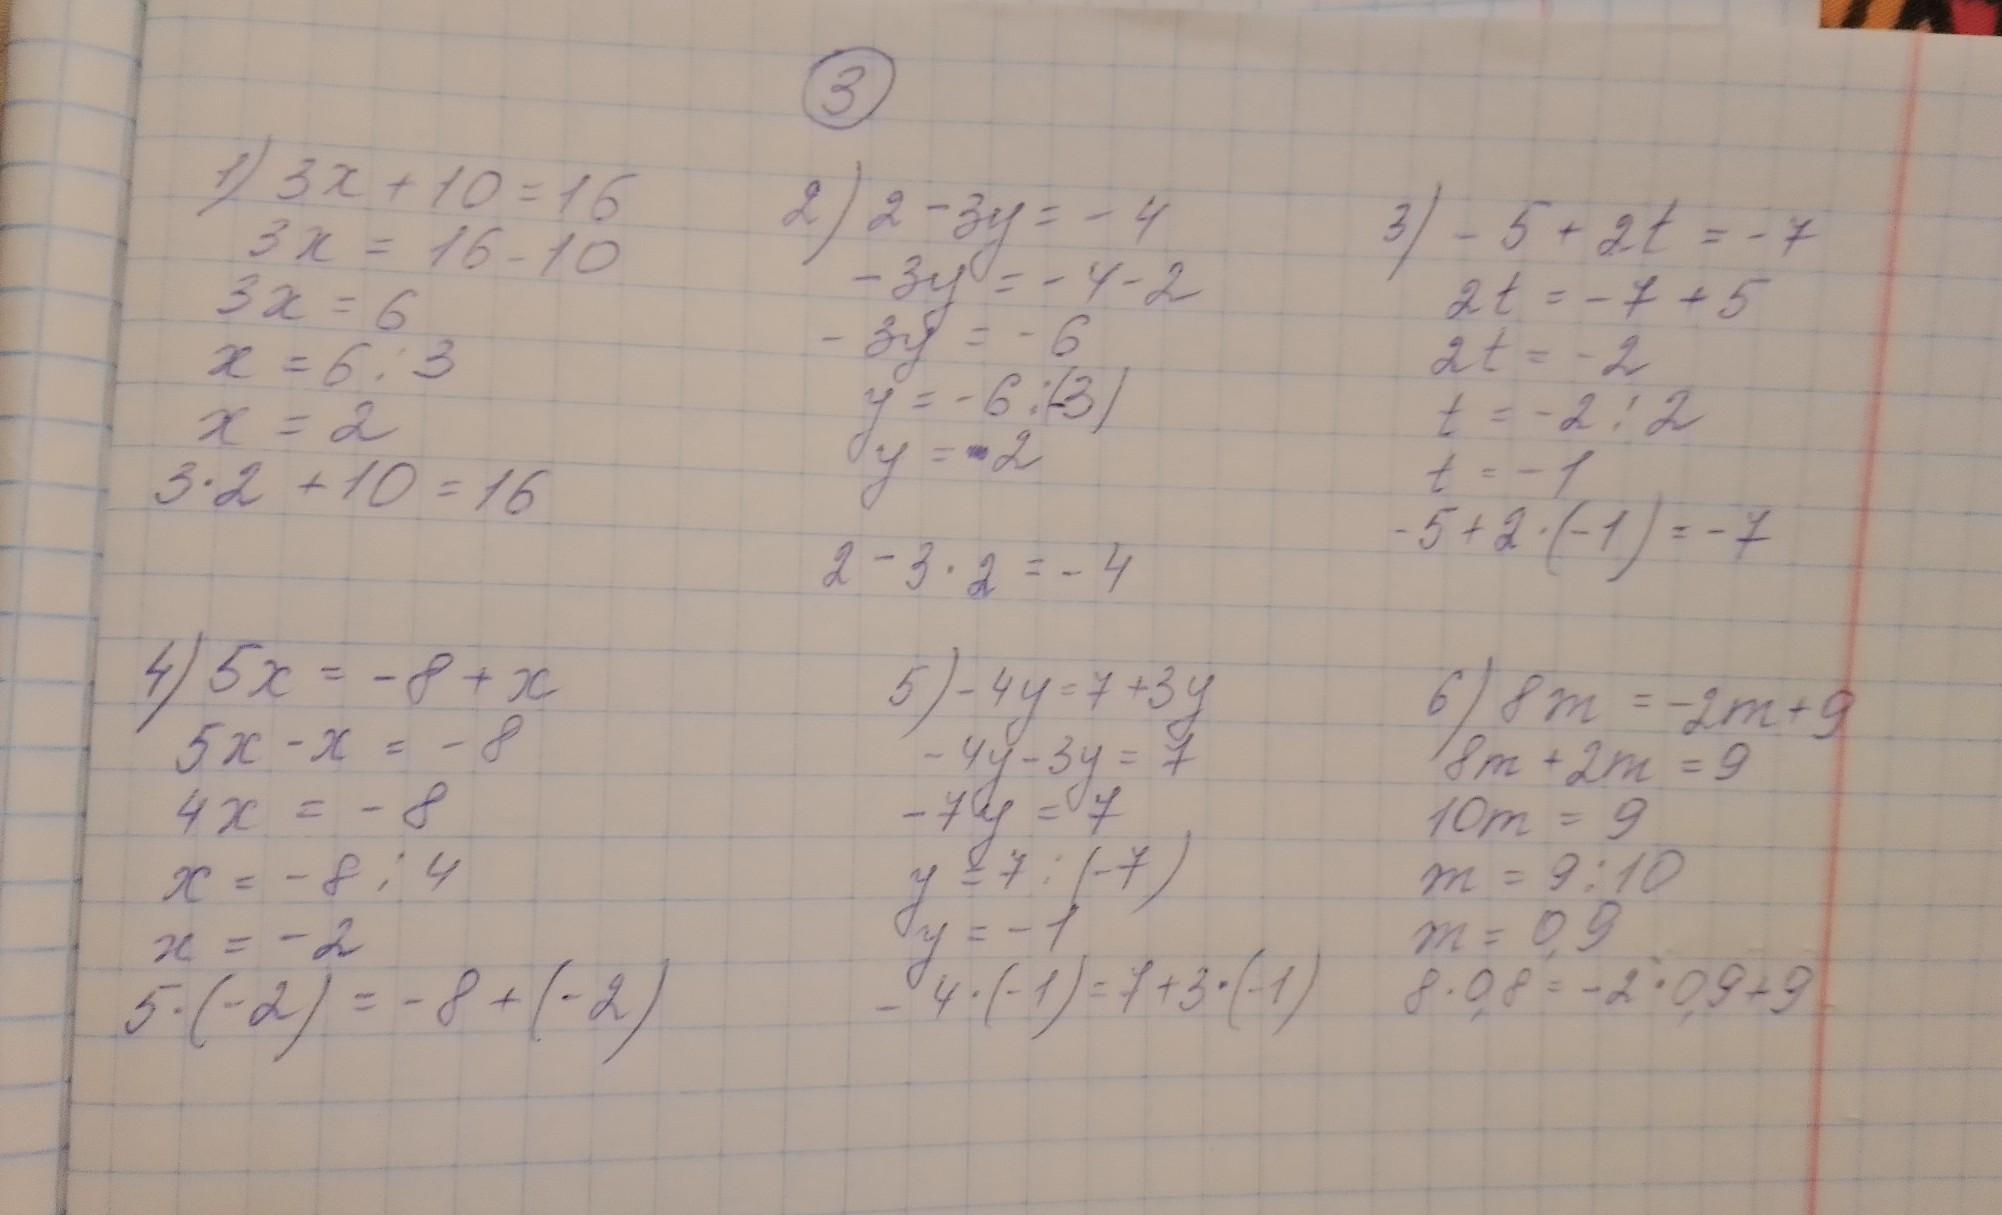 3
1) 3x + 10 = 16
3x = 16 - 10
3x = 6
x = 6 : 3
x = 2
3·2 + 10 = 16
2) 2 - 3y = - 4
- 3y = - 4 - 2
- 3y = - 6
y = - 6 : (-3)
y = 2
2 - 3 · 2 = - 4
3) - 5 + 2t = - 7
2t = - 7 + 5
2t = - 2
t = - 2 : 2
t = - 1
- 5 + 2 · (- 1) = - 7
4) 5x = - 8 + x
5x - x = - 8
4x = - 8
x = - 8 : 4
x = - 2
5·(- 2) = - 8 + (- 2)
5) - 4y = 7 + 3y
- 4y - 3y = 7
- 7y = 7
y = 7 : (- 7)
y = - 1
- 4·(- 1) = 7 + 3·(- 1)
6) 8m = - 2m + 9
8m + 2m = 9
10m = 9
m = 9 : 10
m = 0,9
8 · 0,8 = - 2 · 0,9 + 9